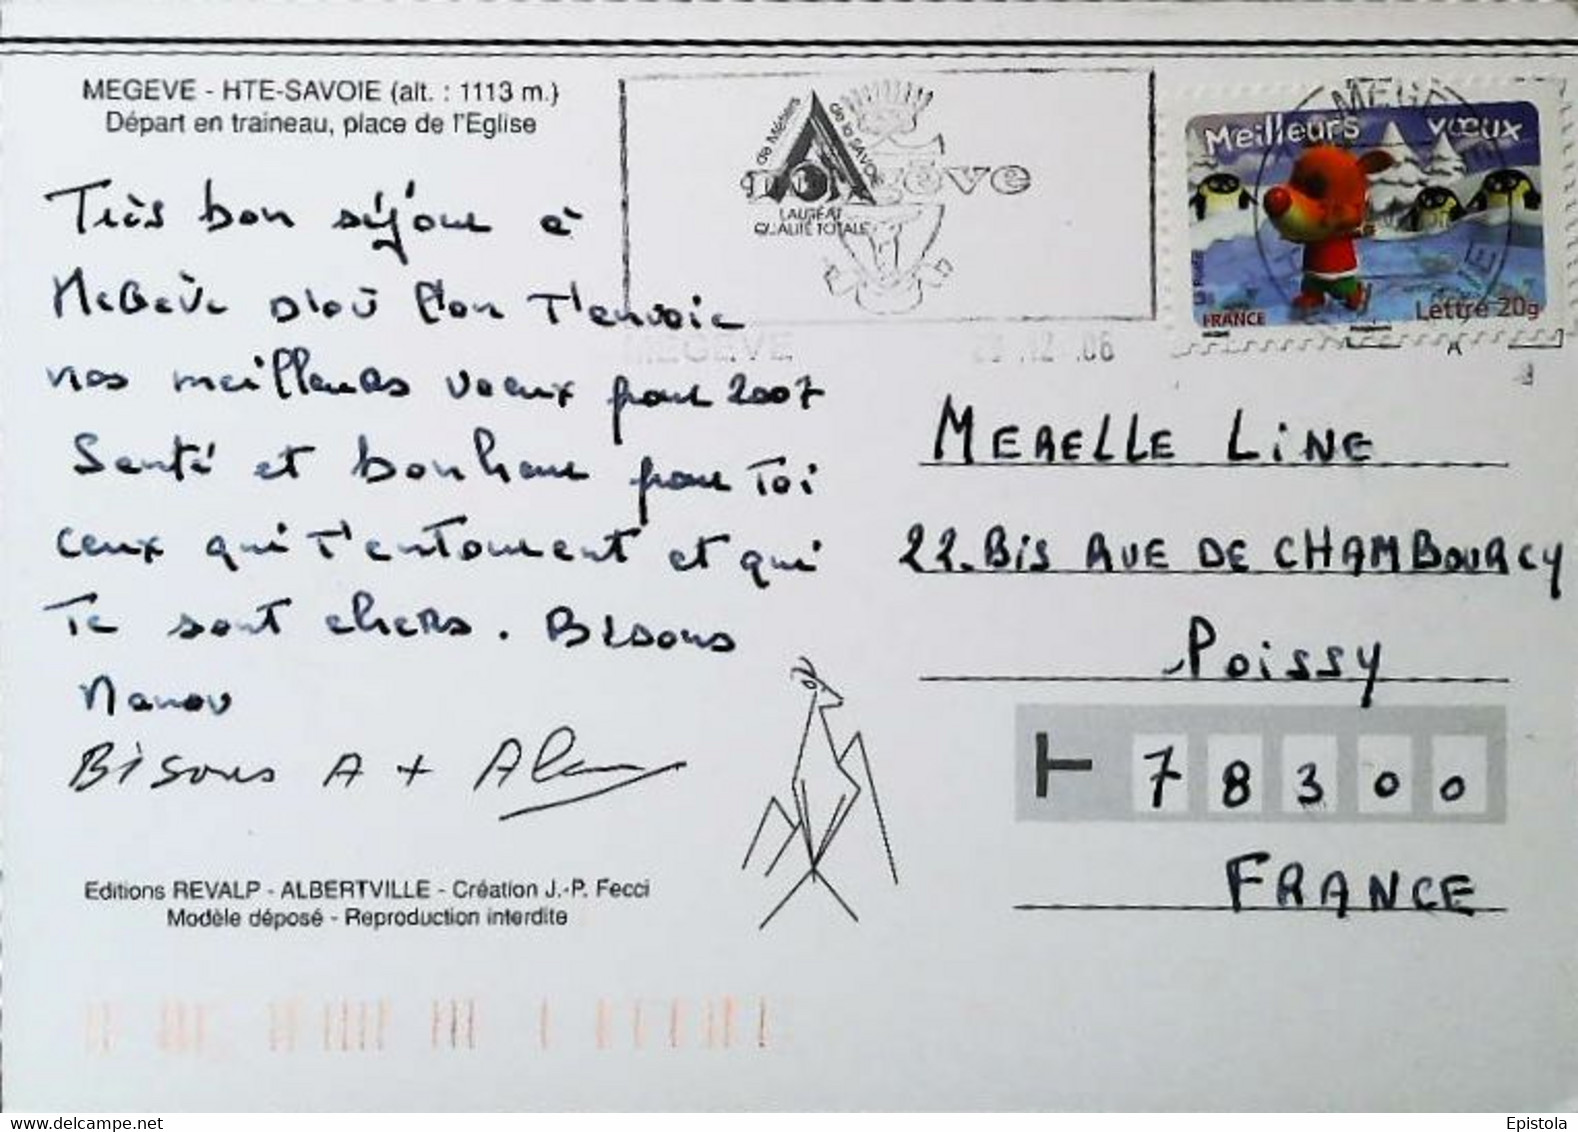 MEGEVE - HTE-SAVOIE (alt. : 1113 m.)
Départ en traineau, place de l'Eglise
Très bon séjour à
Megève d'où l'on t'envoie
nos meilleurs voeux pour 2007
Santé et bonheur pour toi
ceux qui t'entourent et qui
te sont chers. Bisous
Manou
Bisous A + Alain
Editions REVALP - ALBERTVILLE - Création J.-P. Fecci
Modèle déposé - Reproduction interdite
de Métiers
de la SAVOIE
LAURÉAT
QUALITÉ TOTALE
MEGEVE
.12 .06
MEGEVE
Meilleurs vœux
FRANCE
Lettre 20g
MERELLE LINE
22.BIS RUE DE CHAMBOURCY
POISSY
78300
FRANCE
Epistola